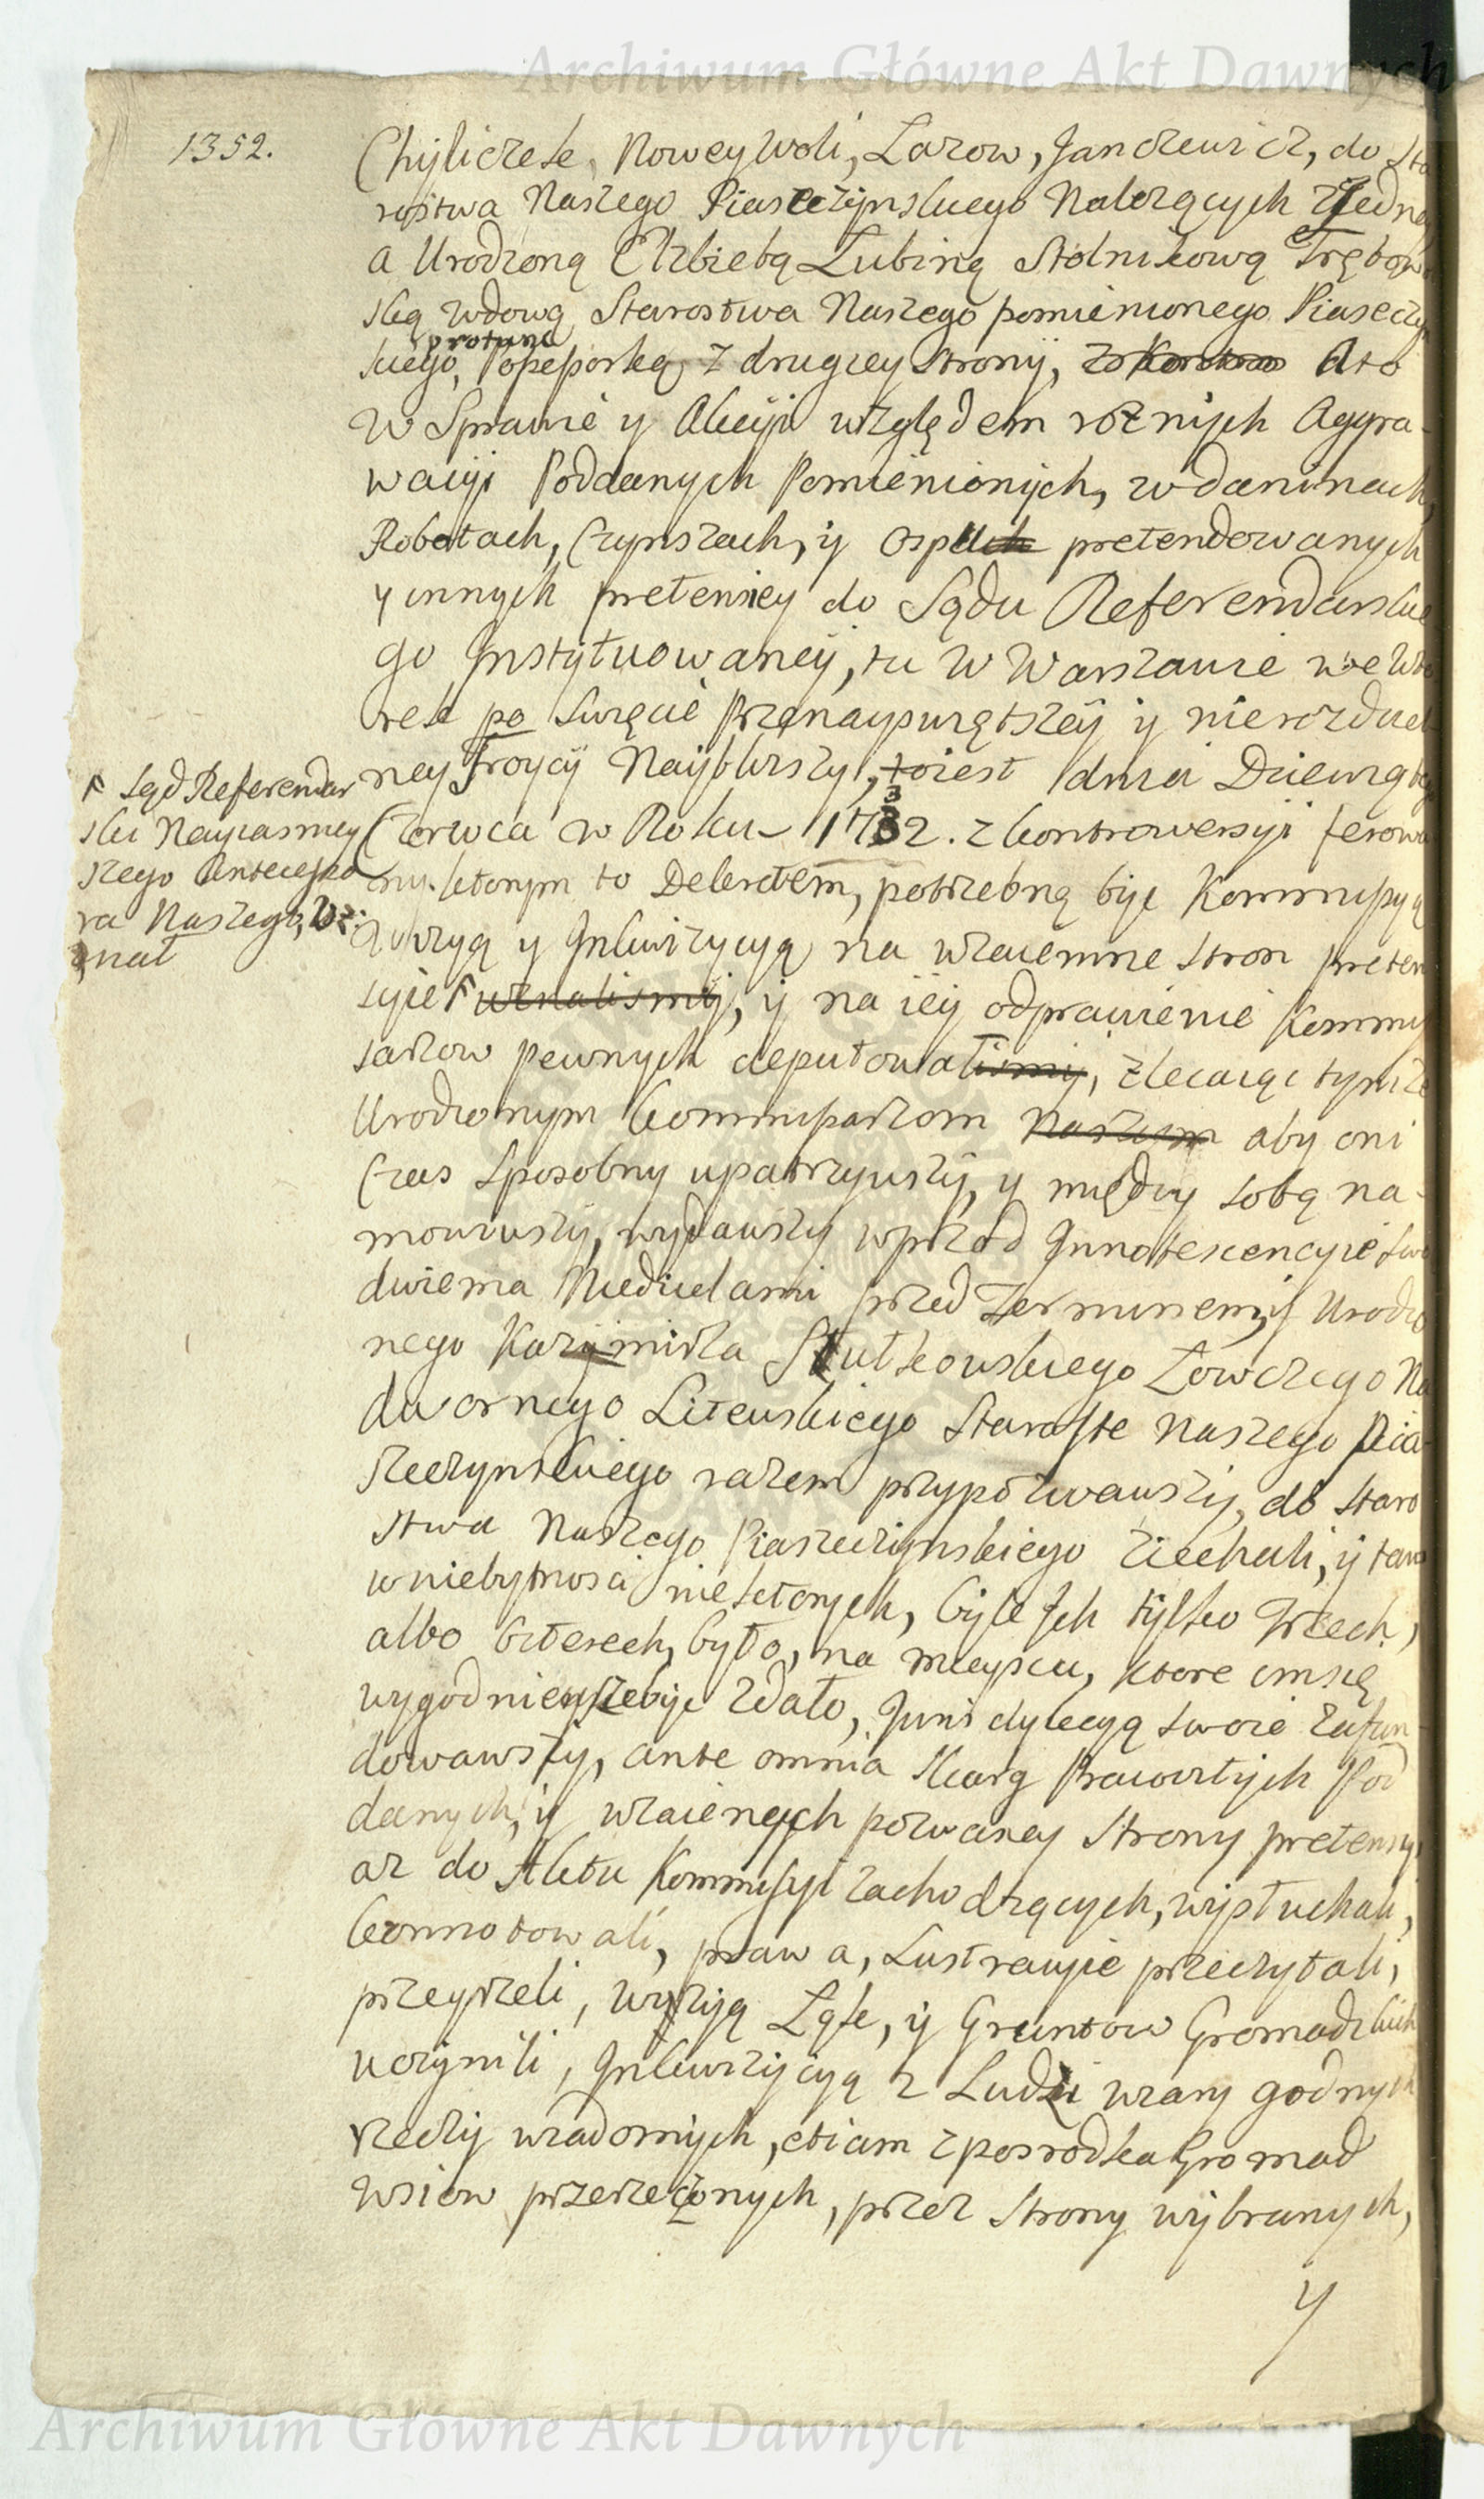 Archiwum Główne Akt Dawnych
1352.
Chyliczek, Nowey Woli, Lazow, Janczewicz, do Sta
rostwa Naszego Piaseczynskiego Nalezących z Jedney
a Urodzoną Elzbietą Lubiną Stolnikową Trębow
ską wdową Starostwa Naszego pomienionego Piaseczyn
skiego, Possessorką, z drugiey Strony, Ato
w Sprawie y Akcyi względem roznych Aggra-
wacyi Poddanych Pomienionych, w daninach,
Robotach, Czynszach, y Osp pretendowanych
y innych pretensiey do Sądu Referendarskie
go Instytuowaney, tu w Warszawie we Wto
rek po Swięcie Przenayswiętszey y nierozdziel
ney Troycy Nayblizszy, toiest dnia Dziewiątego
Czerwca w Roku 1732. z kontrowersyi ferowa
nym. ktorym to Dekretem, potrzebną być Kommissyą
Wizyą y Inkwizycyą na wzaiemne Stron preten
sye uznalismy, y na iey odprawienie Kommis
sarzow pewnych deputowalismy, zlecaiąc tymze
Urodzonym Kommissarzom Naszym aby oni
Czas Sposobny upatrzywszy, y między sobą na-
mowiwszy, wydawszy wprzod Innotescencyie swe
dwiema Niedzielami przed Terminem, y Urodzo
nego Kazimirza Rutkowskiego Łowczego Na
dwornego Litewskiego Staroste Naszego Pia-
seczynskiego razem przypozwawszy, do Staro
stwa Naszego Piaseczynskiego ziechali, y tam
w niebytnosci niektorych, byle Ich tylko Trzech,
albo Czterech, było, na mieyscu, ktore im się
wygodnieysze być zdało, Jurisdykcyą swoie zafun-
dowawszy, ante omnia Skarg Pracowitych Pod
danych, y wzaiemnych pozwaney Strony pretensyi
az do Aktu Kommissyi zachodzących, wysłuchali,
konnotowali, prawa, Lustracyie przeczytali,
przeyrzeli, wizyą Łąk, y Gruntow Gromadzkich
uczynili, Inkwizycyą z Ludzi wiary godnych
rzeczy wiadomych, etiam z posrodka Gromad
wsiow przerzeczonych, przez Strony wybranych,
y
Sąd Referendar
ski Nayiasniey
szego Antecesso
ra Naszego, uz:
nał
Archiwum Główne Akt Dawnych